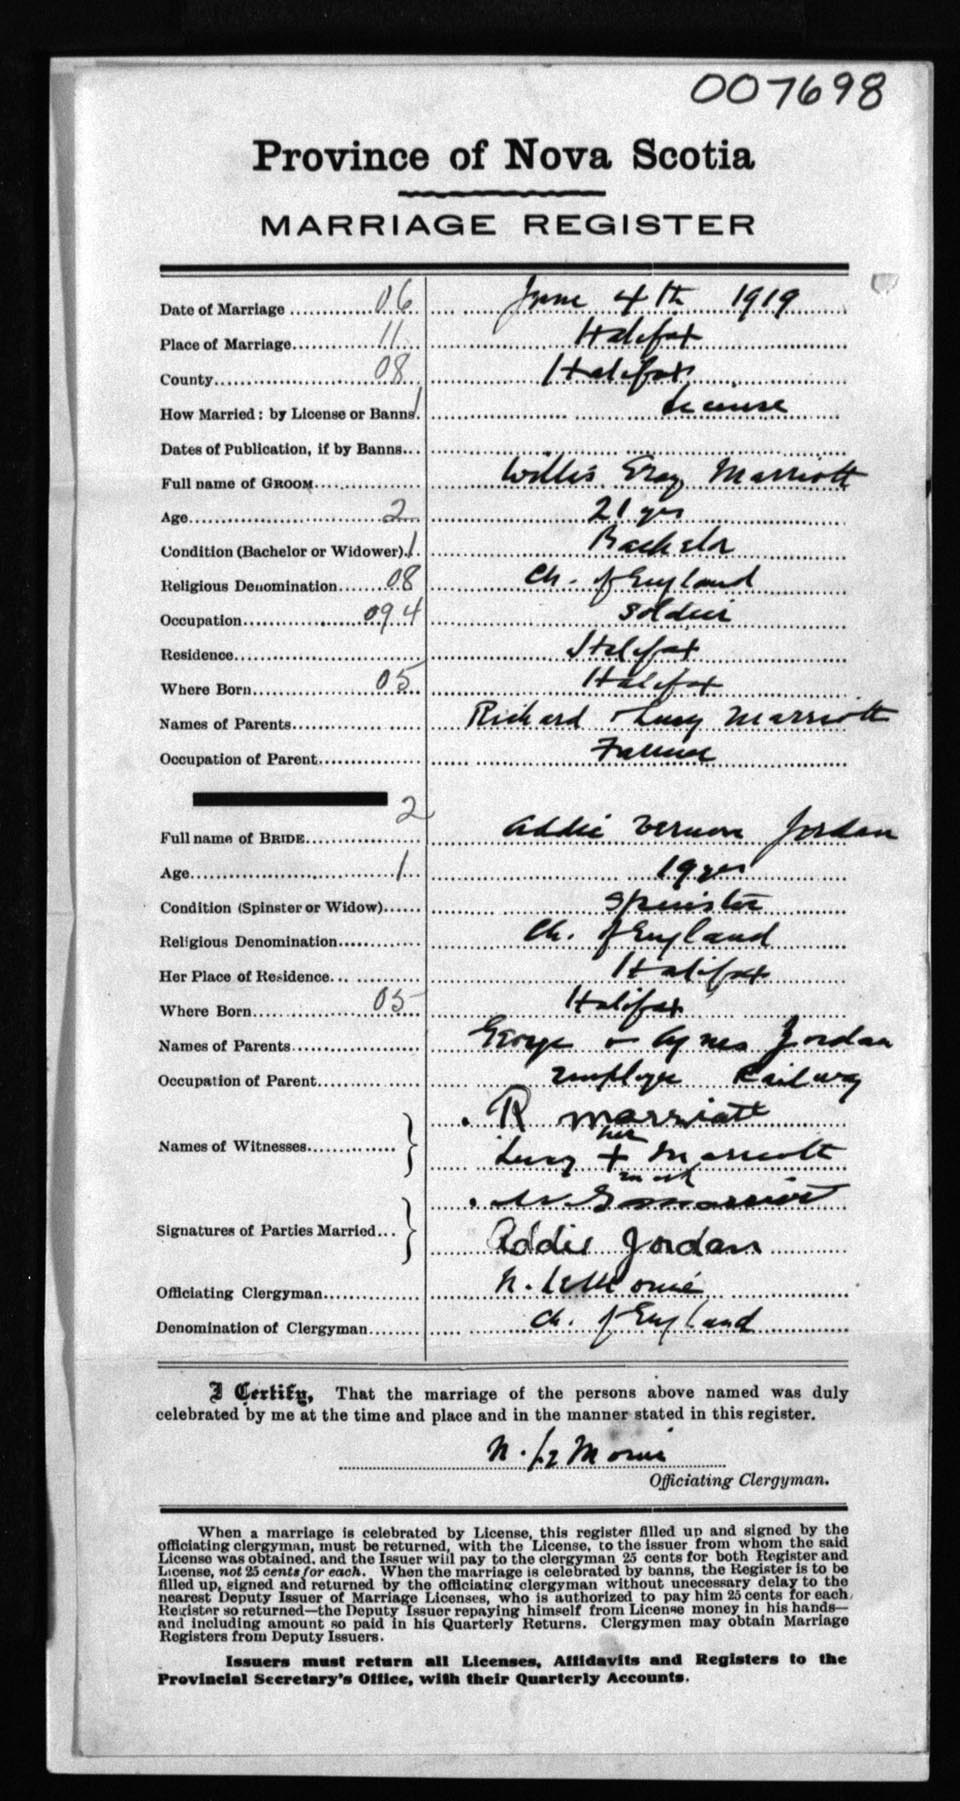 007698
Province of Nova Scotia
MARRIAGE REGISTER
Date of Marriage 06 June 4th 1919
Place of Marriage 11 Halifax
County 08 Halifax
How Married: by License or Banns 1 License
Dates of Publication, if by Banns
Full name of GROOM Willis Gray Marriott
Age 2 21 yrs
Condition (Bachelor or Widower) 1 Bachelor
Religious Denomination 08 Ch. of England
Occupation 094 Soldier
Residence Halifax
Where Born 05 Halifax
Names of Parents Richard + Lucy Marriott
Occupation of Parent Farmer
2
Full name of BRIDE Addie Vernon Jordan
Age 1 19 yrs
Condition (Spinster or Widow) Spinster
Religious Denomination Ch. of England
Her Place of Residence Halifax
Where Born 05 Halifax
Names of Parents George + Agnes Jordan
Occupation of Parent Employee Railway
Names of Witnesses R Marriott
her
Lucy + Marriott
mark
Signatures of Parties Married W G Marriott
Addie Jordan
Officiating Clergyman N. LeMoine
Denomination of Clergyman Ch. of England
I Certify, That the marriage of the persons above named was duly
celebrated by me at the time and place and in the manner stated in this register.
N. LeMoine
Officiating Clergyman.
When a marriage is celebrated by License, this register filled up and signed by the
officiating clergyman, must be returned, with the License, to the issuer from whom the said
License was obtained, and the Issuer will pay to the clergyman 25 cents for both Register and
License, not 25 cents for each. When the marriage is celebrated by banns, the Register is to be
filled up, signed and returned by the officiating clergyman without unnecessary delay to the
nearest Deputy Issuer of Marriage Licenses, who is authorized to pay him 25 cents for each
Register so returned—the Deputy Issuer repaying himself from License money in his hands—
and including amount so paid in his Quarterly Returns. Clergymen may obtain Marriage
Registers from Deputy Issuers.
Issuers must return all Licenses, Affidavits and Registers to the
Provincial Secretary's Office, with their Quarterly Accounts.